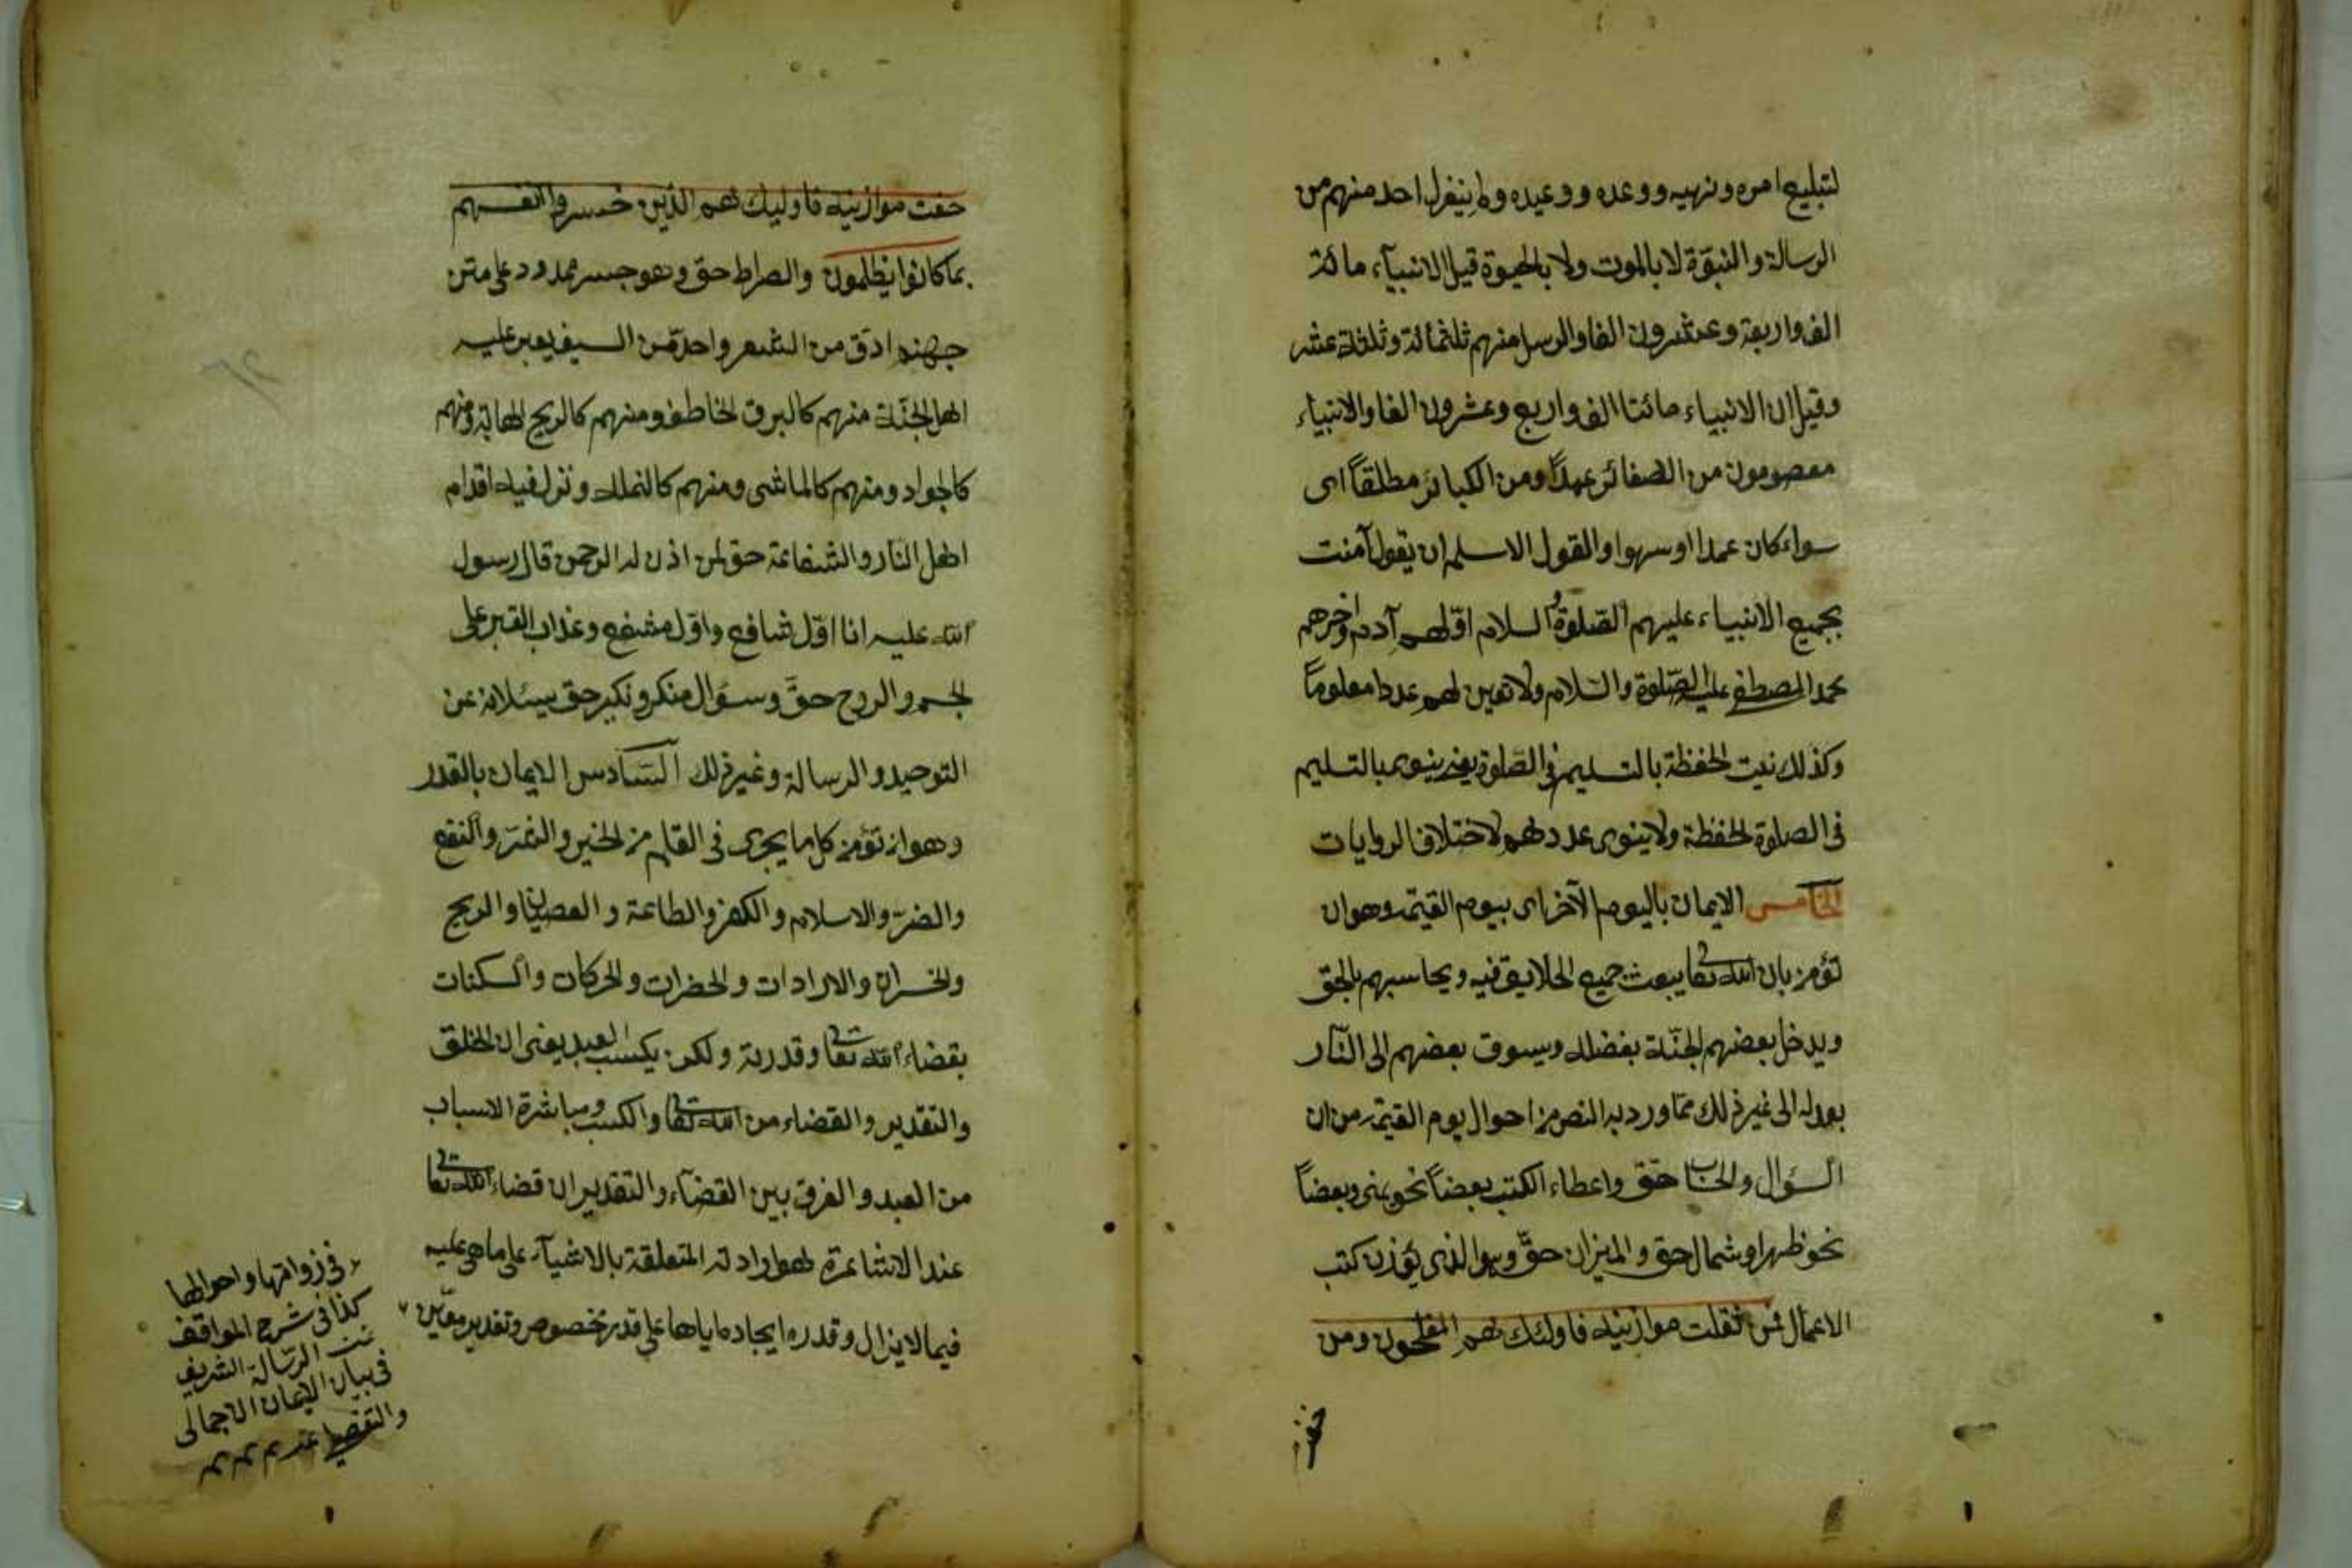 لتبليغ امره ونهيه ووعده ووعيده ولم ينعزل احد منهم من
الرسالة والنبوّة لا بالموت ولا بالحيوة قيل الانبيآء مائة
الف واربعة وعشرون الفا والرسل منهم ثلثمائة وثلثة عشر
وقيل ان الانبياء مائتا الف واربع وعشرون الفا والانبياء
معصومون من الصغائر عمداً ومن الكبائر مطلقاً اى
سواء كان عمدا او سهوا والقول الاسلم ان يقول آمنت
بجميع الانبياء عليهم الصّلوة والسلام اوّلهم آدم وآخرهم
محمد المصطفى عليه الصّلوة والسّلام ولا تعين لهم عددا معلوماً
وكذلك نيت الحفظة بالتسليم فى الصّلوة يعنى ينوى بالتسليم
فى الصلوة الحفظة ولا ينوى عددهم لاختلاف الروايات
الخامس الايمان باليوم الآخر اى بيوم القيمة وهو ان
تؤمن بان الله تعالى يبعث جميع الخلايق فيه ويحاسبهم بالحق
ويدخل بعضهم الجنّة بفضله ويسوق بعضهم الى النّار
بعدله الى غير ذلك ممّا ورد به النص من احوال يوم القيمة من ان
السؤال والحساب حقّ واعطاء الكتب بعضاً نحو يمنى وبعضاً
نحو ظهر او شمال حق والميزان حقّ وهو الذى يوزن كتب
الاعمال فمن ثقلت موازينه فاولئك هم المفلحون ومن
خفت
خفت موازينه فاوليك هم الذين خسروا انفسهم
بما كانوا يظلمون والصراط حق وهو جسر ممدود على متن
جهنم ادق من الشعر واحدّ من السيف يعبر عليه
اهل الجنّة منهم كالبرق الخاطف ومنهم كالريح الهابة ومنهم
كالجواد ومنهم كالماشى ومنهم كالنملة وتزل فيه اقدام
اهل النار والشفاعة حق لمن اذن له الرحمن قال رسول
الله عليه انا اوّل شافع واوّل مشفع وعذاب القبر على
الجسم والروح حقّ وسؤال منكر ونكير حق يسئلانه عن
التوحيد والرسالة وغير ذلك السّادس الايمان بالقدر
وهو ان تؤمن كل ما يجرى فى القلم من الخير والشرّ والنفع
والضرّ والاسلام والكفر والطاعة والعصيان والربح
والخسران والارادات والخطرات والحركات والسكنات
بقضاء الله تعالى وقدرته ولكن يكسب العبد يعنى ان الخلق
والتقدير والقضاء من الله تعالى والكسب ومباشرة الاسباب
من العبد والفرق بين القضآء والتقدير ان قضاء الله تعالى
عند الاشاعرة هو ارادته المتعلقة بالاشيآء على ما هى عليه
فيما لا يزال وقدره ايجاده اياها على قدر مخصوص وتقدير معيّن
فى ذواتها واحوالها
كذا فى شرح المواقف
تمت الرّسالة الشريفة
فى بيان الايمان الاجمالى
والتفصيلى